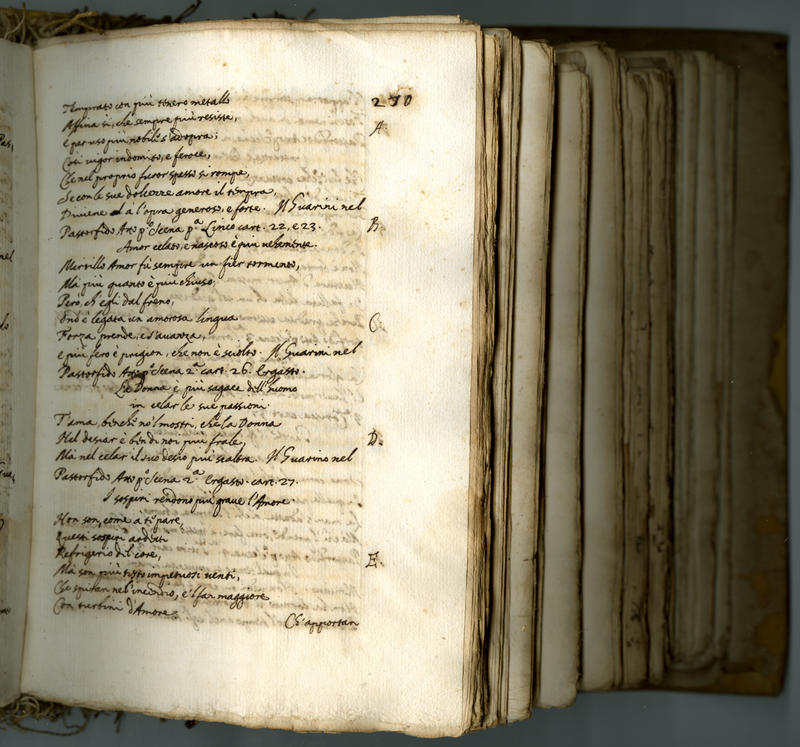 230
Temprato con più tenero metallo
Affina sì, che sempre più resiste,
e per uso più nobil s'adopra;
Così vigor indomito, e feroce,
Che nel proprio furor spesso si rompe,
Se con le sue dolcezze amore il tempra,
Diviene a l'opra generoso, e forte. Il Guarini nel
Pastorfido Atto p.º Scena p.ª Linco cart. 22, e 23.
Amor celato, e nascoso è più vehemente.
Mirtillo Amor fù sempre un fier tormento,
Mà più quanto è più chiuso;
Però, ch'egli dal freno,
Ond'è legata un amorosa lingua
Forza prende, e s'avanza,
e più fero è prigion, che non è sciolto. Il Guarini nel
Pastorfido Atto p.º Scena 2.ª cart. 26. Ergasto.
La Donna è più sagace dell'huomo
in celar le sue passioni.
T'ama, benche no'l mostri, che la Donna
Nel desiar è ben di noi più frale,
Mà nel celar il suo desio più scaltra. Il Guarino nel
Pastorfido Atto p.º Scena 2.ª Ergasto. cart. 27.
I sospiri rendono più grave l'Amore
Non son, come a ti pare,
Questi sospiri ardenti
Refrigerio del core,
Mà son più tosto impetuosi venti,
Che spiran nel'incendio, e'l fan maggiore
Con turbini d'Amore
Ch'apportan
A.
B.
C.
D.
E.